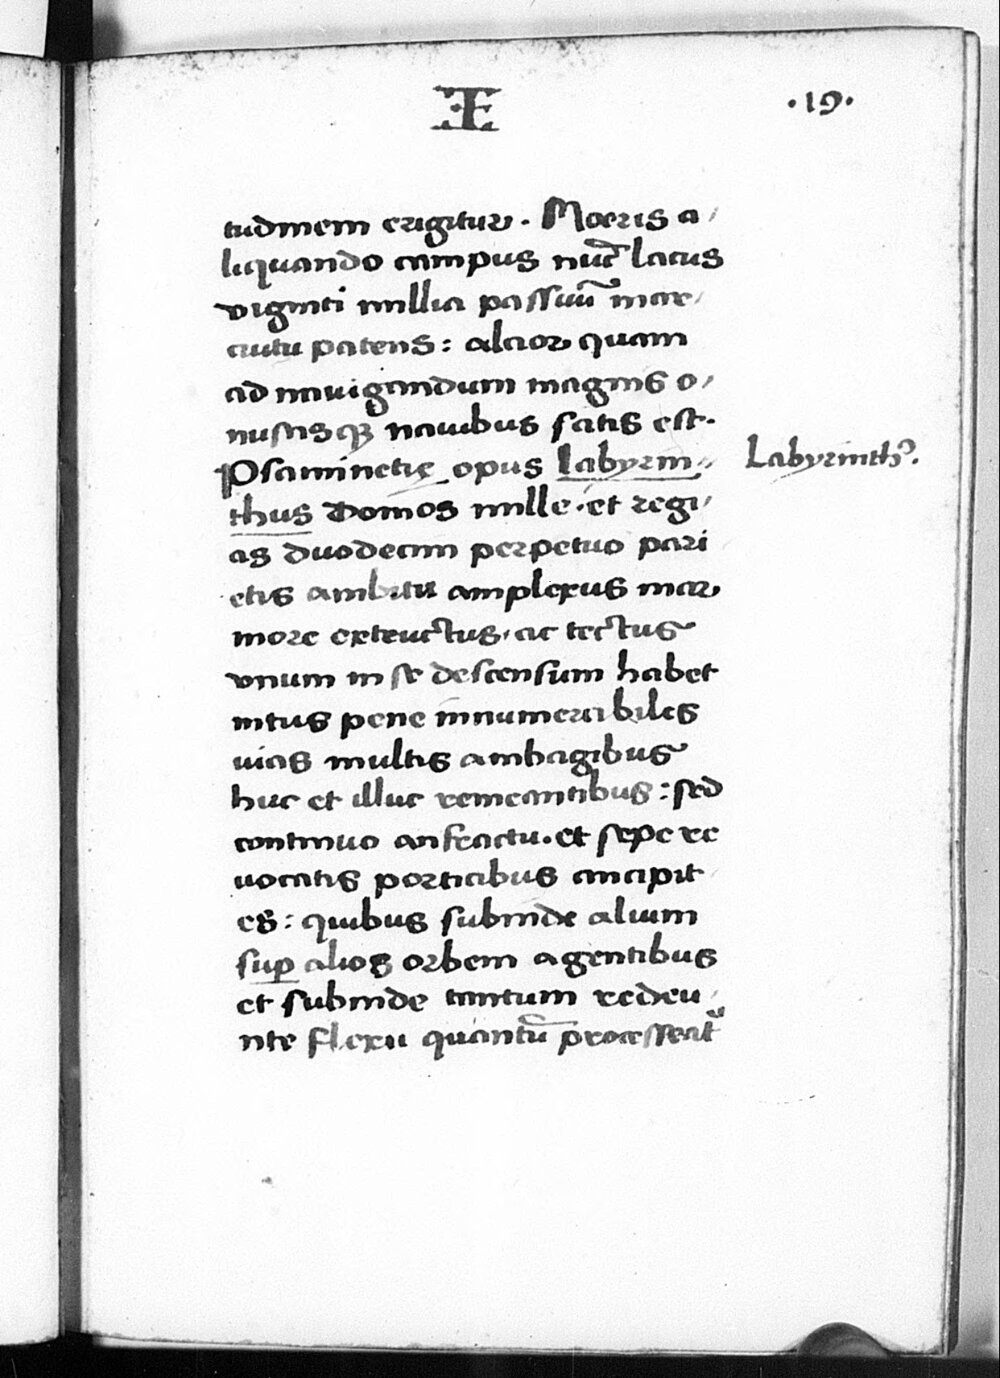 Æ .19.
tudinem erigitur. Moeris a
liquando campus nūc lacus
viginti millia passuū in cir
cuitu patens: alcior quam
ad navigandum magnis o
nustisqȝ navibus satis est.
Psaminetię opus labyrin Labyrinthꝰ.
thus Domos mille. et regi
as duodecim perpetuo pari
etis ambitu amplexus mar
more extructus, ac tectus
vnum in se descensum habet
intus pene innumerabiles
uias multis ambagibus
huc et illuc remeantibus: sed
continuo anfractu. et sepe re
uocatis porticibus ancipit
es: quibus subinde alium
suꝑ alios orbem agentibus
et subinde tantum redeu
nte flexu quantū processeāt